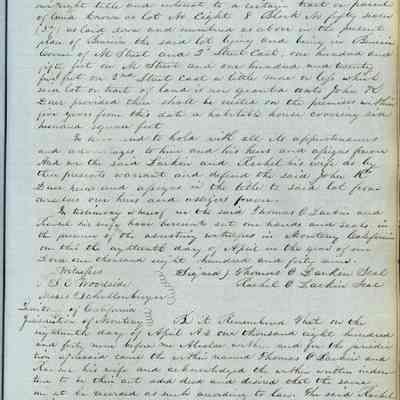 our right title and interest to a certain tract or parcel
of land known as lot No Eight 8 Block No fifty seven
(57) as laid down and numbered as above in the present
plan of Benicia the said lot lying and being in Benicia
Corner of M Street and 2d Street East, one hundred and
fifty feet on M Street and one hundred and twenty
five feet on 2nd Street east a little more or less which
said lot or tract of land is now granted unto John H
Duer provided there shall be erected on the premises within
five years from this date a habitable house covering six
hundred square feet
To have and to hold with all its appurtenances
and advantages to him and his heirs and assigns forever
And we the said Larkin and Rachel his wife do by
these presents warrant and defend the said John H
Duer heirs and assigns in the title to said lot from
ourselves our heirs and assigns forever.
In testimony whereof we the said Thomas O Larkin and
Rachel his wife have hereunto set our hands and seals in
the presence of the attesting witnesses in Monterey California
on this the eighteenth day of April in the year of our
Lord one thousand eight hundred and forty nine.
Witnesses Signed Thomas O Larkin Seal
Woodside Rachel O Larkin Seal
Moses Schallenberger
Territory of California
Jurisdiction of Monterey Be it Remembered that on the
eighteenth day of April AD one thousand eight hundred
and forty nine before me Alcalde within and for the jurisdic
tion aforesaid came the within named Thomas O Larkin and
Rachel his wife and acknowledged the within written inden
ture to be their act and deed and desired that the same
might be record as such according to law. The said Rachel